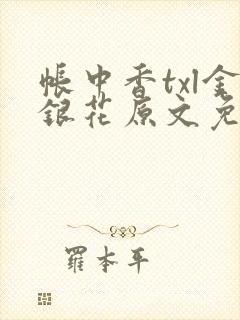 帳中香txl金
銀花原文免
羅本平